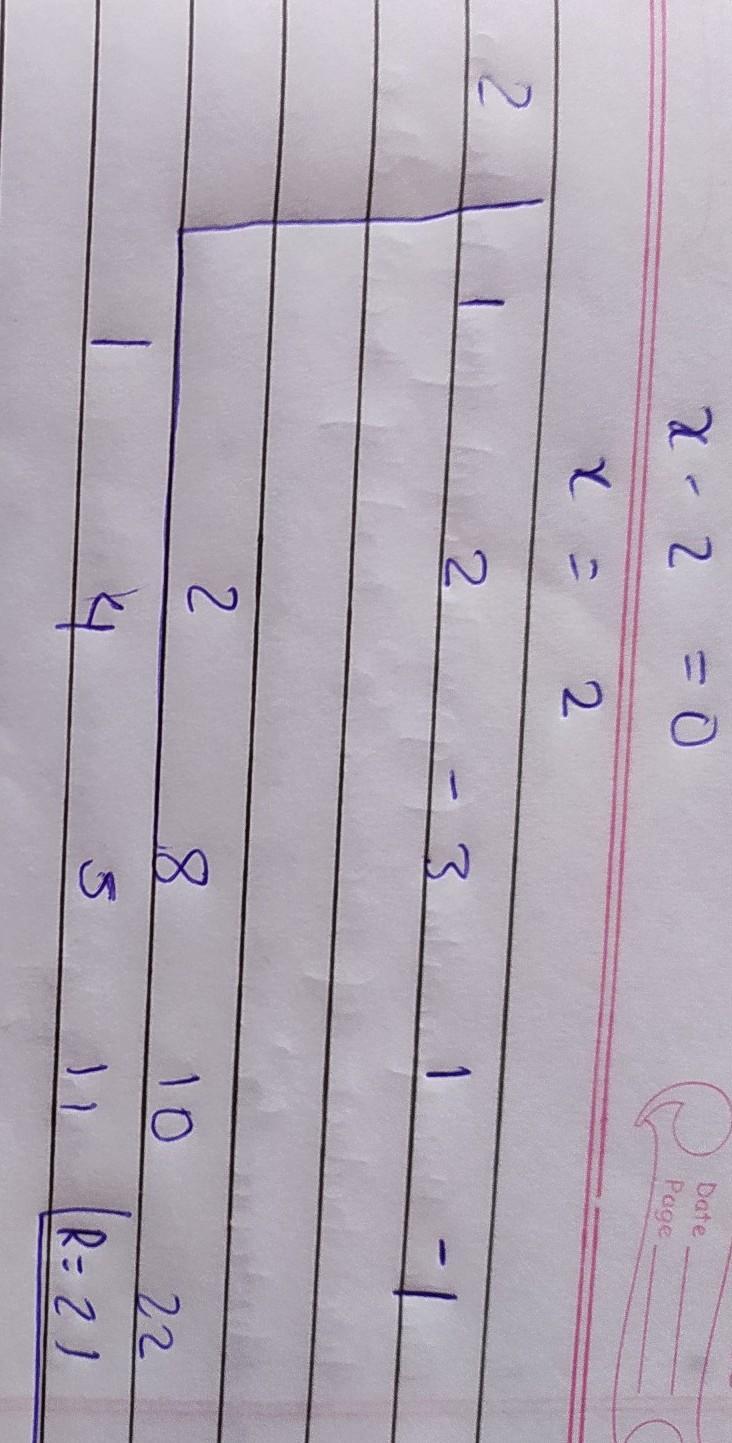 Date
Page
x - 2 = 0
x = 2
2 1 2 - 3 1 - 1
2 8 10 22
1 4 5 11 R = 21